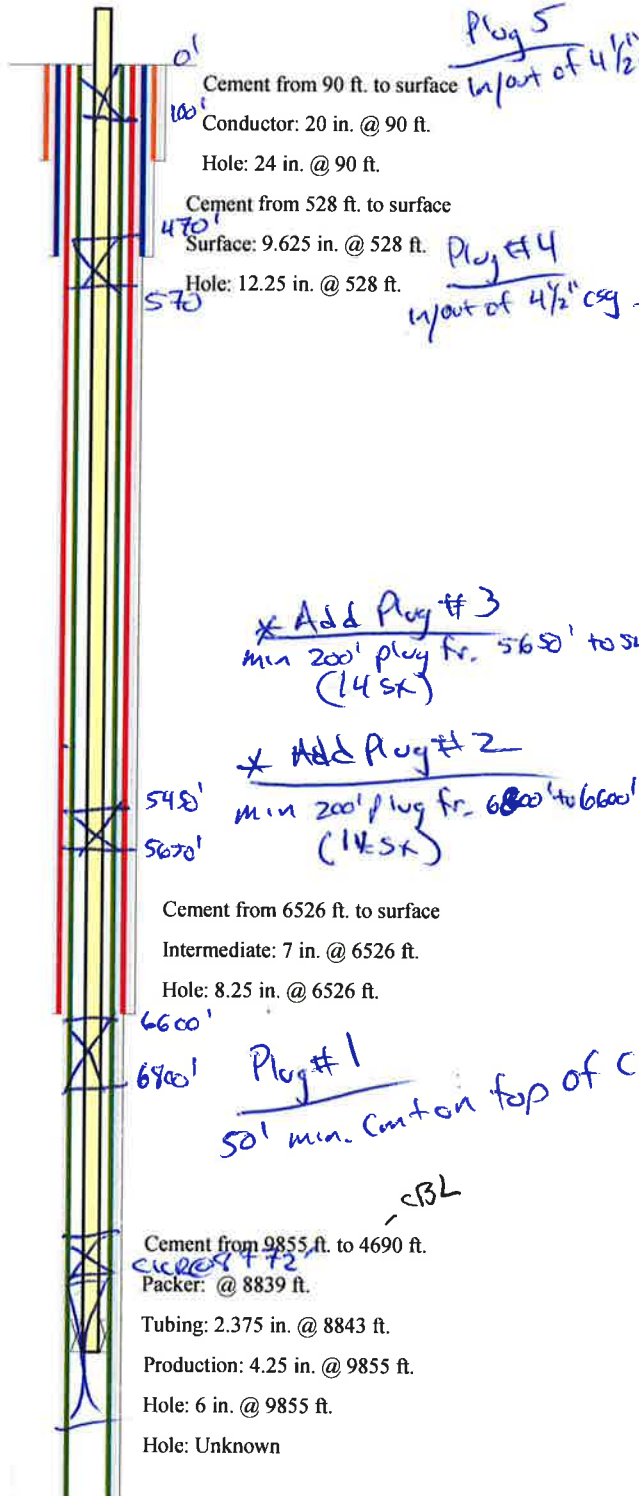 Plug 5
in/out of 4 1/2"
0'
Cement from 90 ft. to surface
100'
Conductor: 20 in. @ 90 ft.
Hole: 24 in. @ 90 ft.
Cement from 528 ft. to surface
470'
Surface: 9.625 in. @ 528 ft.
Plug #4
Hole: 12.25 in. @ 528 ft.
570'
in/out of 4 1/2" csg
* Add Plug #3
min 200' plug fr. 5650' to
(14 sx)
* Add Plug #2
min 200' plug fr. 6800' to 6600'
(14 sx)
5450'
5650'
Cement from 6526 ft. to surface
Intermediate: 7 in. @ 6526 ft.
Hole: 8.25 in. @ 6526 ft.
6600'
6800'
Plug #1
50' min. cmt on top of C
CBL
Cement from 9855 ft. to 4690 ft.
CICR@8772'
Packer: @ 8839 ft.
Tubing: 2.375 in. @ 8843 ft.
Production: 4.25 in. @ 9855 ft.
Hole: 6 in. @ 9855 ft.
Hole: Unknown